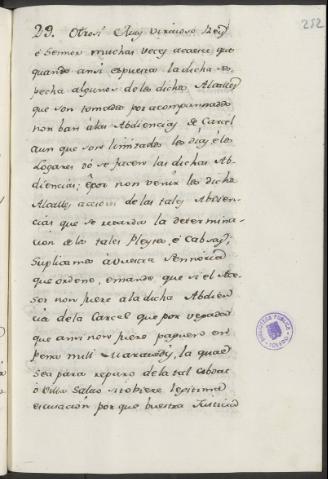 252
29. Otrosi Muy virtuoso Rey
é Señor muchas veces acaece que
quando ansi es puesta la dicha sos-
pecha algunos de los dichos Alcaldes
que son tomados por acompañados
non ban á las Abdiencias de Carcel
aun que son limitados los dias é los
Logares dó se facen las dichas Ab-
diencias; é por non venir los dichos
Alcaldes acaece de las tales Abdien-
cias que se retarda la determina-
cion de los tales Pleytos, é Cabsas,
Suplicamos á Vuestra Señoria
que ordene, é mande, que si el
non fuere á la dicha Abdien-
cia de la Carcel que por vegada
que ansi non fuere paguen en
pena mill Maravedis, la qual
sea para reparo de la tal Cibdat
ó Villa salvo si obiere legitima
escusacion por que vuestra Justicia
BIBLIOTECA PUBLICA
TOLEDO